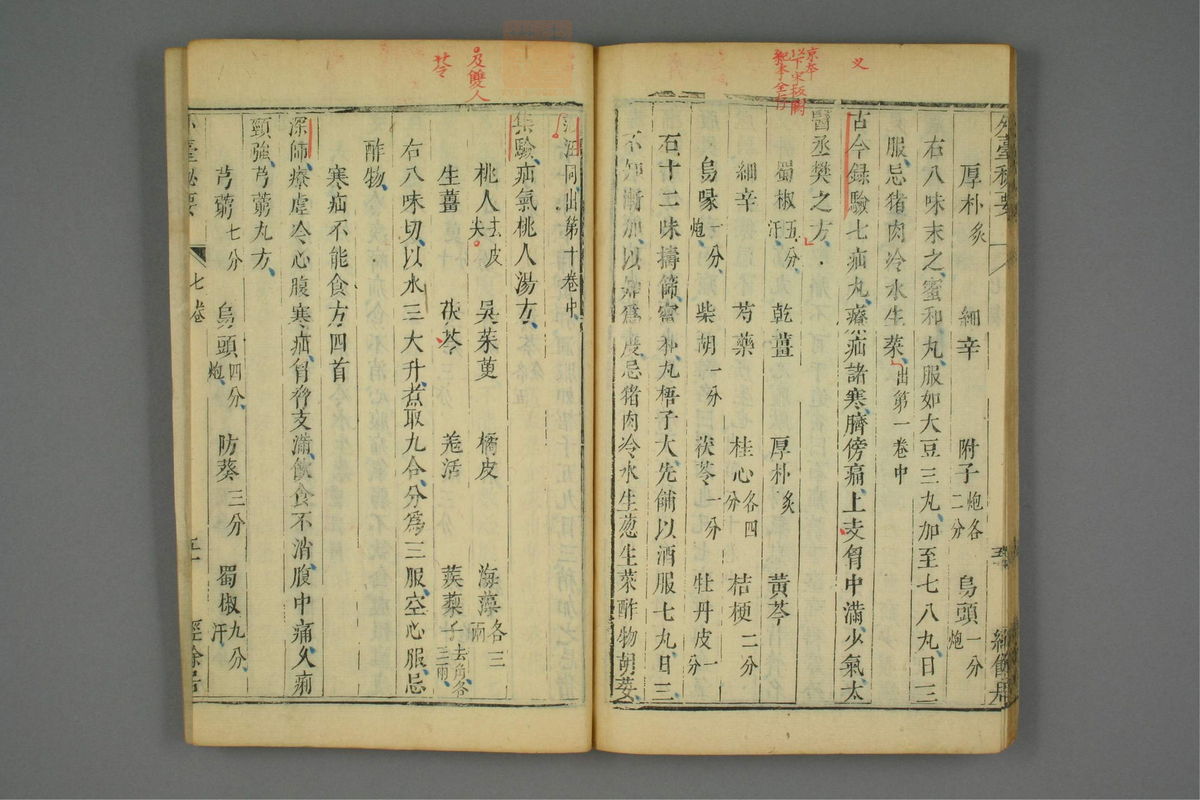 京本
以下宋板闕
紀本全有
义
外臺秘要
厚朴炙 細辛 附子炮各二分 烏頭一分炮
右八味末之蜜和丸服如大豆三丸加至七八丸日三
服忌猪肉冷水生菜出第一卷中
古今録驗七疝丸療疝諸寒臍傍痛上支胷中滿少氣太
醫丞樊之方
蜀椒五分汗 乾薑 厚朴炙 黃芩
細辛 芍藥 桂心各四分 桔梗二分
烏喙一分炮 柴胡一分 茯苓一分 牡丹皮一分
右十二味擣篩蜜和丸梧子大先餔以酒服七丸日三
不知漸加以知爲度忌猪肉冷水生葱生菜酢物胡荽
及雙人
苓
同出第十卷中
集驗疝氣桃人湯方
桃人去皮尖 吳茱萸 橘皮 海藻各三兩
生薑 茯苓 羗活 蒺蔾子去角各三兩
右八味切以水三大升煮取九合分爲三服空心服忌
酢物
寒疝不能食方四首
深師療虛冷心腹寒疝胷脅支滿飲食不消腹中痛久痢
頸強芎藭丸方
芎藭七分 烏頭四分炮 防葵三分 蜀椒九分汗
外臺秘要 七卷 經餘居